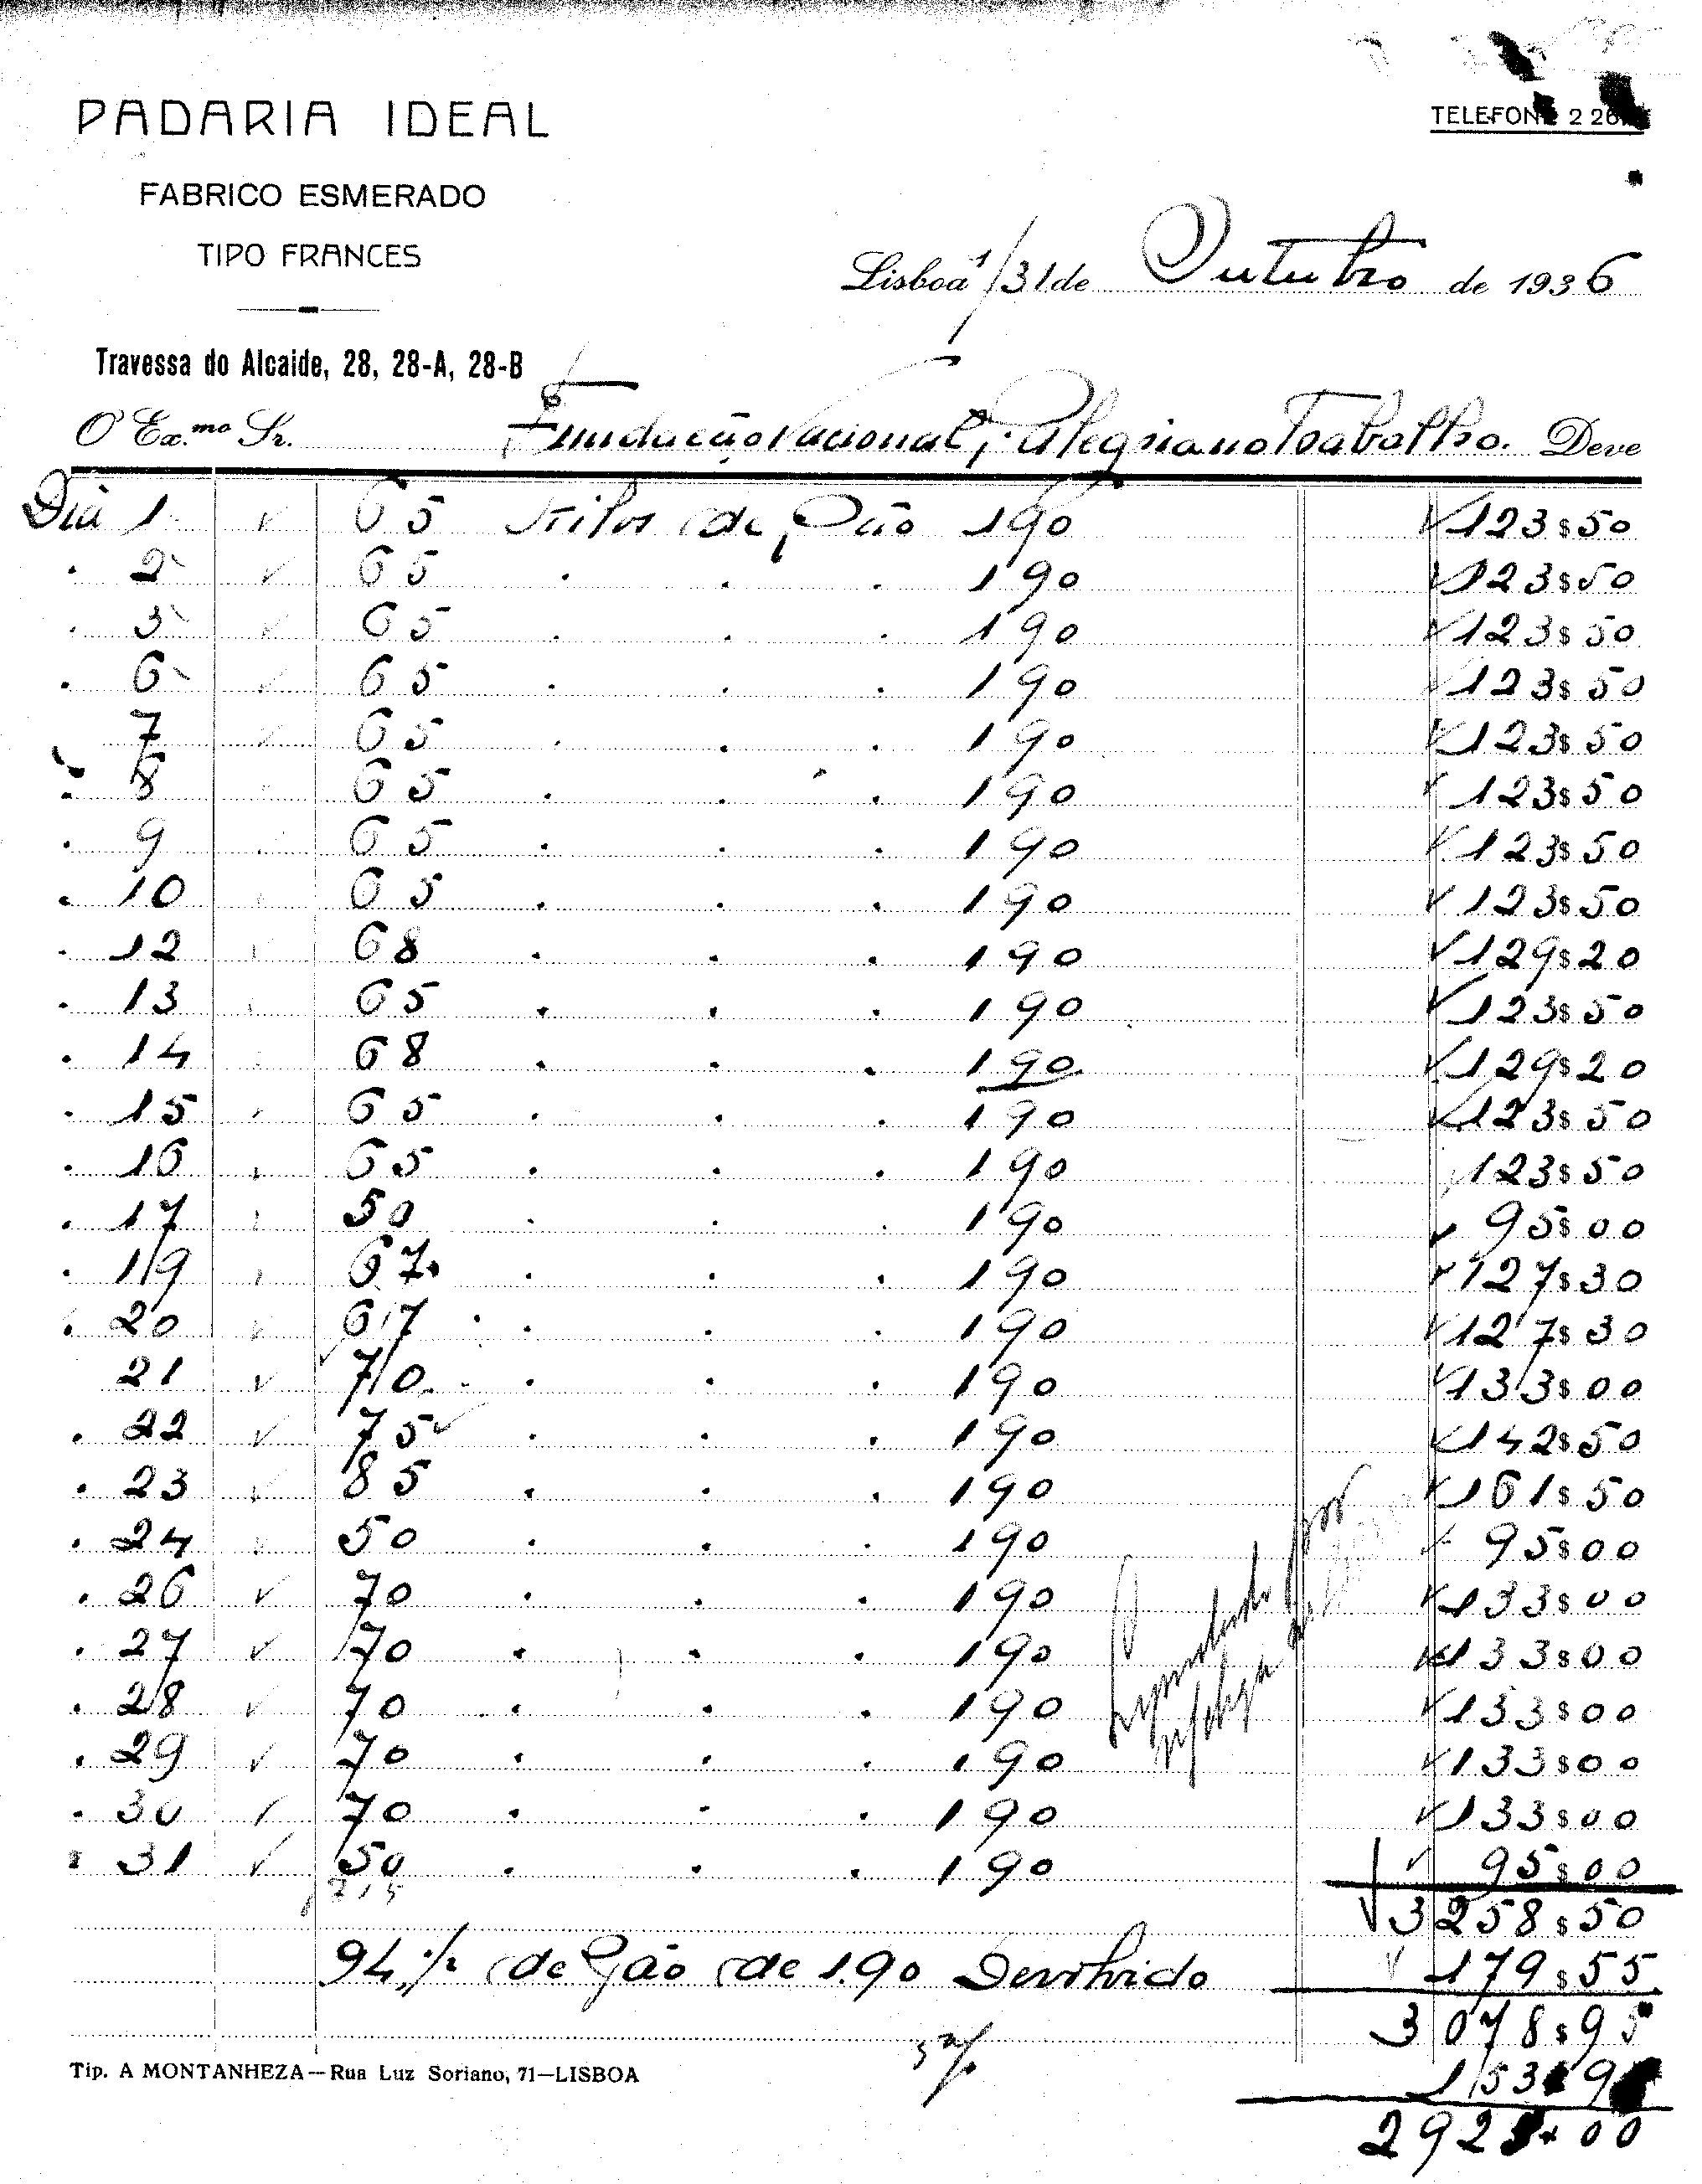 PADARIA IDEAL
TELEFONE 2 26
FABRICO ESMERADO
TIPO FRANCES
Lisboa 1/31 de Outubro de 1936
Travessa do Alcaide, 28, 28-A, 28-B
O Ex.mo Sr. Fundação Nacional p.ª Alegria no Trabalho. Deve
Dia 1 65 Kilos de Pão 190 123$50
" 2 65 " " " 190 123$50
" 3 65 " " " 190 123$50
" 6 65 " " " 190 123$50
7 65 " " " 190 123$50
" 8 65 " " " 190 123$50
" 9 65 " " " 190 123$50
" 10 65 " " " 190 123$50
" 12 68 " " " 190 129$20
" 13 65 " " " 190 123$50
" 14 68 " " " 190 129$20
" 15 65 " " " 190 123$50
" 16 65 " " " 190 123$50
" 17 50 " " " 190 95$00
" 19 67 " " " 190 127$30
" 20 67 " " " 190 127$30
21 70 " " " 190 133$00
" 22 75 " " " 190 142$50
" 23 85 " " " 190 161$50
" 24 50 " " " 190 95$00
" 26 70 " " " 190 133$00
" 27 70 " " " 190 133$00
" 28 70 " " " 190 133$00
" 29 70 " " " 190 133$00
" 30 70 " " " 190 133$00
" 31 50 " " " 190 95$00
3258$50
94,½ de Pão de 1.90 Devolvido 179$55
3078$95
5% 153$9
292 00
Tip. A MONTANHEZA—Rua Luz Soriano, 71—LISBOA